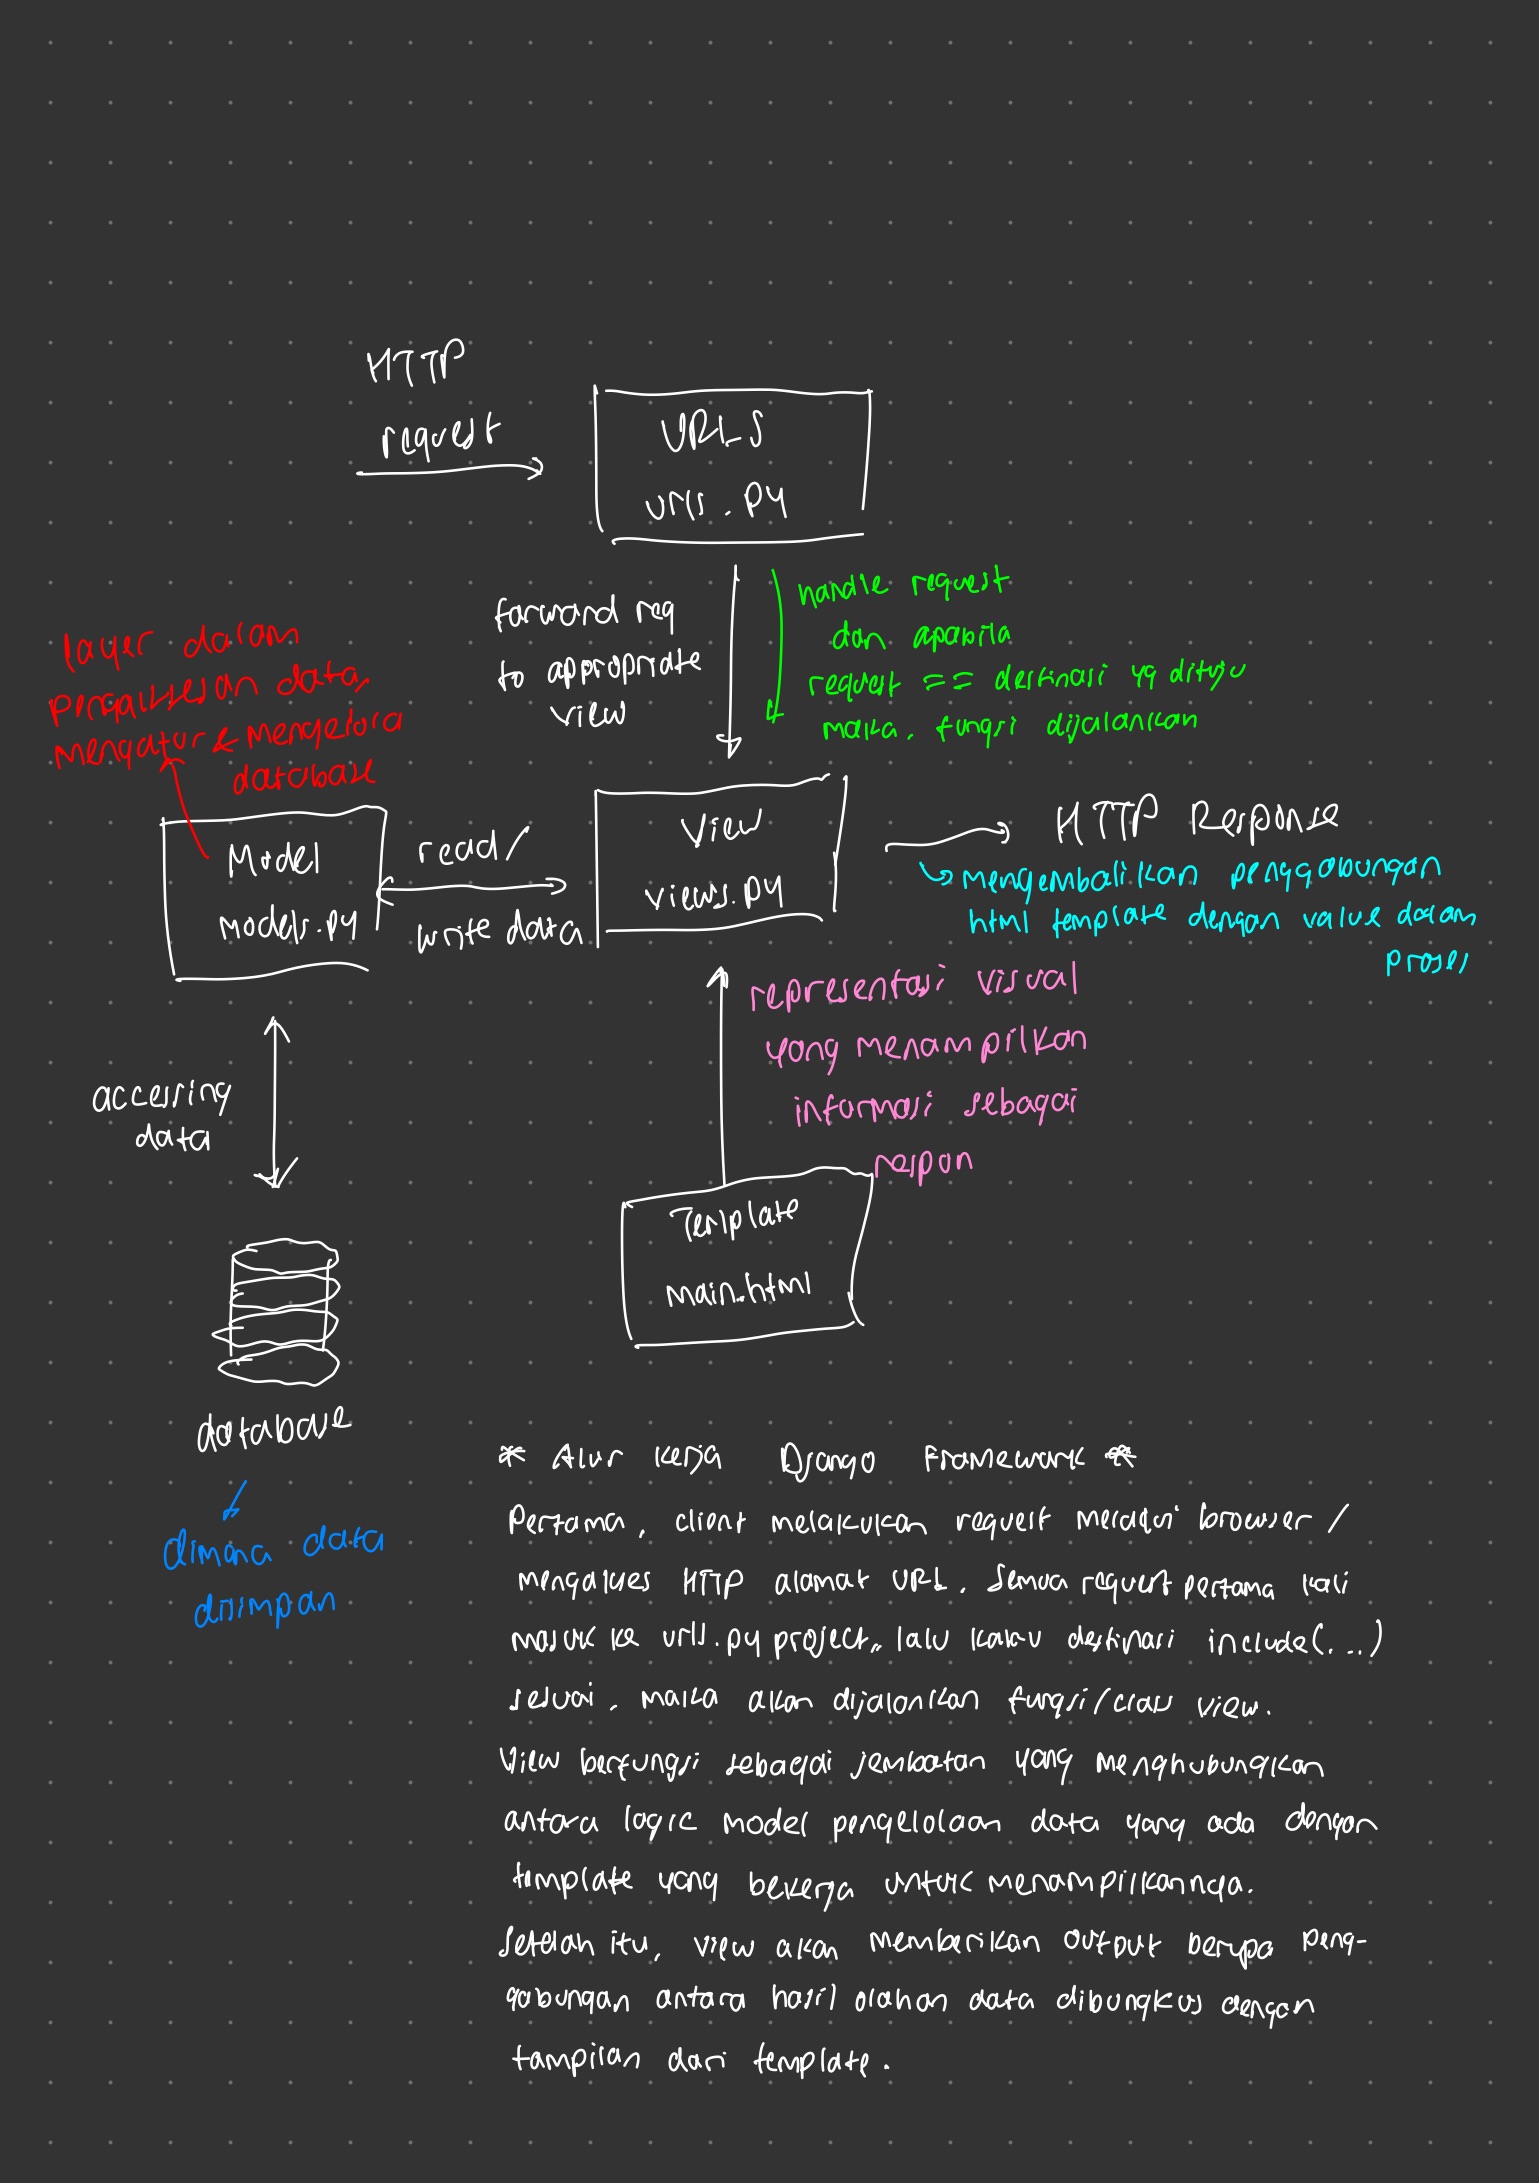 HTTP
request
URLS
urls.py
forward req
to appropriate
view
handle request
dan apabila
request == destinasi yg dituju
maka, fungsi dijalankan
layer dalam
pengaksesan data,
mengatur & mengelola
database
Model
models.py
read/
write data
View
views.py
HTTP Response
mengembalikan penggabungan
html template dengan value dalam
proses
representasi visual
yang menampilkan
informasi sebagai
respon
accessing
data
Template
main.html
database
dimana data
disimpan
* Alur Kerja Django Framework *
Pertama, client melakukan request melalui browser /
mengakses HTTP alamat URL. Semua request pertama kali
masuk ke urls.py project,, lalu kalau destinasi include(...)
sesuai, maka akan dijalankan fungsi/class view.
View berfungsi sebagai jembatan yang menghubungkan
antara logic model pengelolaan data yang ada dengan
template yang bekerja untuk menampilkannya.
Setelah itu, view akan memberikan output berupa peng-
gabungan antara hasil olahan data dibungkus dengan
tampilan dari template.